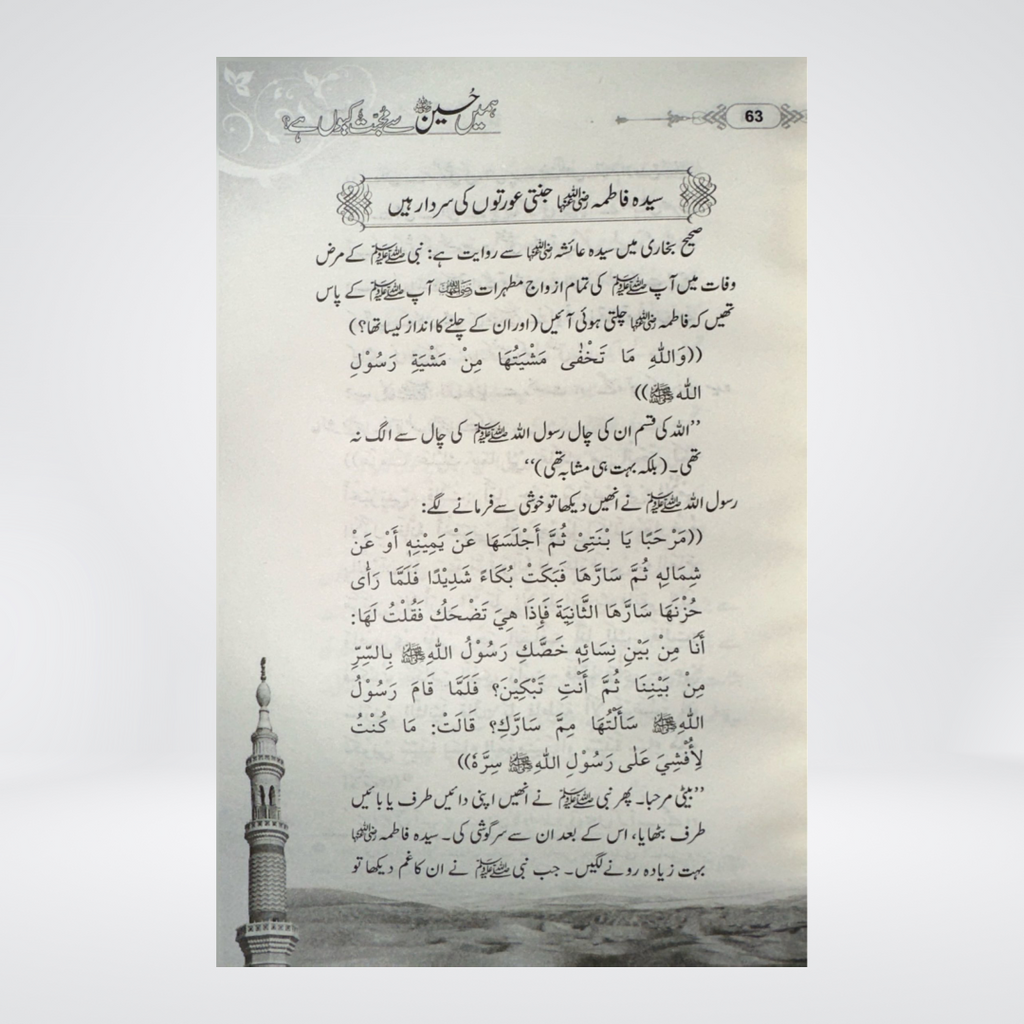 ہمیں حُسین رضی اللہ عنہ سے محبت کیوں ہے؟
63
سیدہ فاطمہ رضی اللہ عنہا جنتی عورتوں کی سردار ہیں
صحیح بخاری میں سیدہ عائشہ رضی اللہ عنہا سے روایت ہے: نبی ﷺ کے مرض
وفات میں آپ ﷺ کی تمام ازواج مطہرات رضی اللہ عنہن آپ ﷺ کے پاس
تھیں کہ فاطمہ رضی اللہ عنہا چلتی ہوئی آئیں (اور ان کے چلنے کا انداز کیسا تھا؟)
((وَاللّٰهِ مَا تَخْفٰى مَشْيَتُهَا مِنْ مَشْيَةِ رَسُوْلِ
اللّٰه ﷺ))
’’اللہ کی قسم ان کی چال رسول اللہ ﷺ کی چال سے الگ نہ
تھی۔ (بلکہ بہت ہی مشابہ تھی)‘‘
رسول اللہ ﷺ نے انھیں دیکھا تو خوشی سے فرمانے لگے:
((مَرْحَبًا يَا بْنَتِيْ ثُمَّ أَجْلَسَهَا عَنْ يَمِيْنِهٖ أَوْ عَنْ
شِمَالِهٖ ثُمَّ سَارَّهَا فَبَكَتْ بُكَاءً شَدِيْدًا فَلَمَّا رَأٰى
حُزْنَهَا سَارَّهَا الثَّانِيَةَ فَإِذَا هِيَ تَضْحَكُ فَقُلْتُ لَهَا:
أَنَا مِنْ بَيْنِ نِسَائِهٖ خَصَّكِ رَسُوْلُ اللّٰهِ ﷺ بِالسِّرِّ
مِنْ بَيْنِنَا ثُمَّ أَنْتِ تَبْكِيْنَ؟ فَلَمَّا قَامَ رَسُوْلُ
اللّٰهِ ﷺ سَأَلْتُهَا مِمَّ سَارَّكِ؟ قَالَتْ: مَا كُنْتُ
لِأُفْشِيَ عَلٰى رَسُوْلِ اللّٰهِ ﷺ سِرَّهٗ))
’’بیٹی مرحبا۔ پھر نبی ﷺ نے انھیں اپنی دائیں طرف یا بائیں
طرف بٹھایا، اس کے بعد ان سے سرگوشی کی۔ سیدہ فاطمہ رضی اللہ عنہا
بہت زیادہ رونے لگیں۔ جب نبی ﷺ نے ان کا غم دیکھا تو